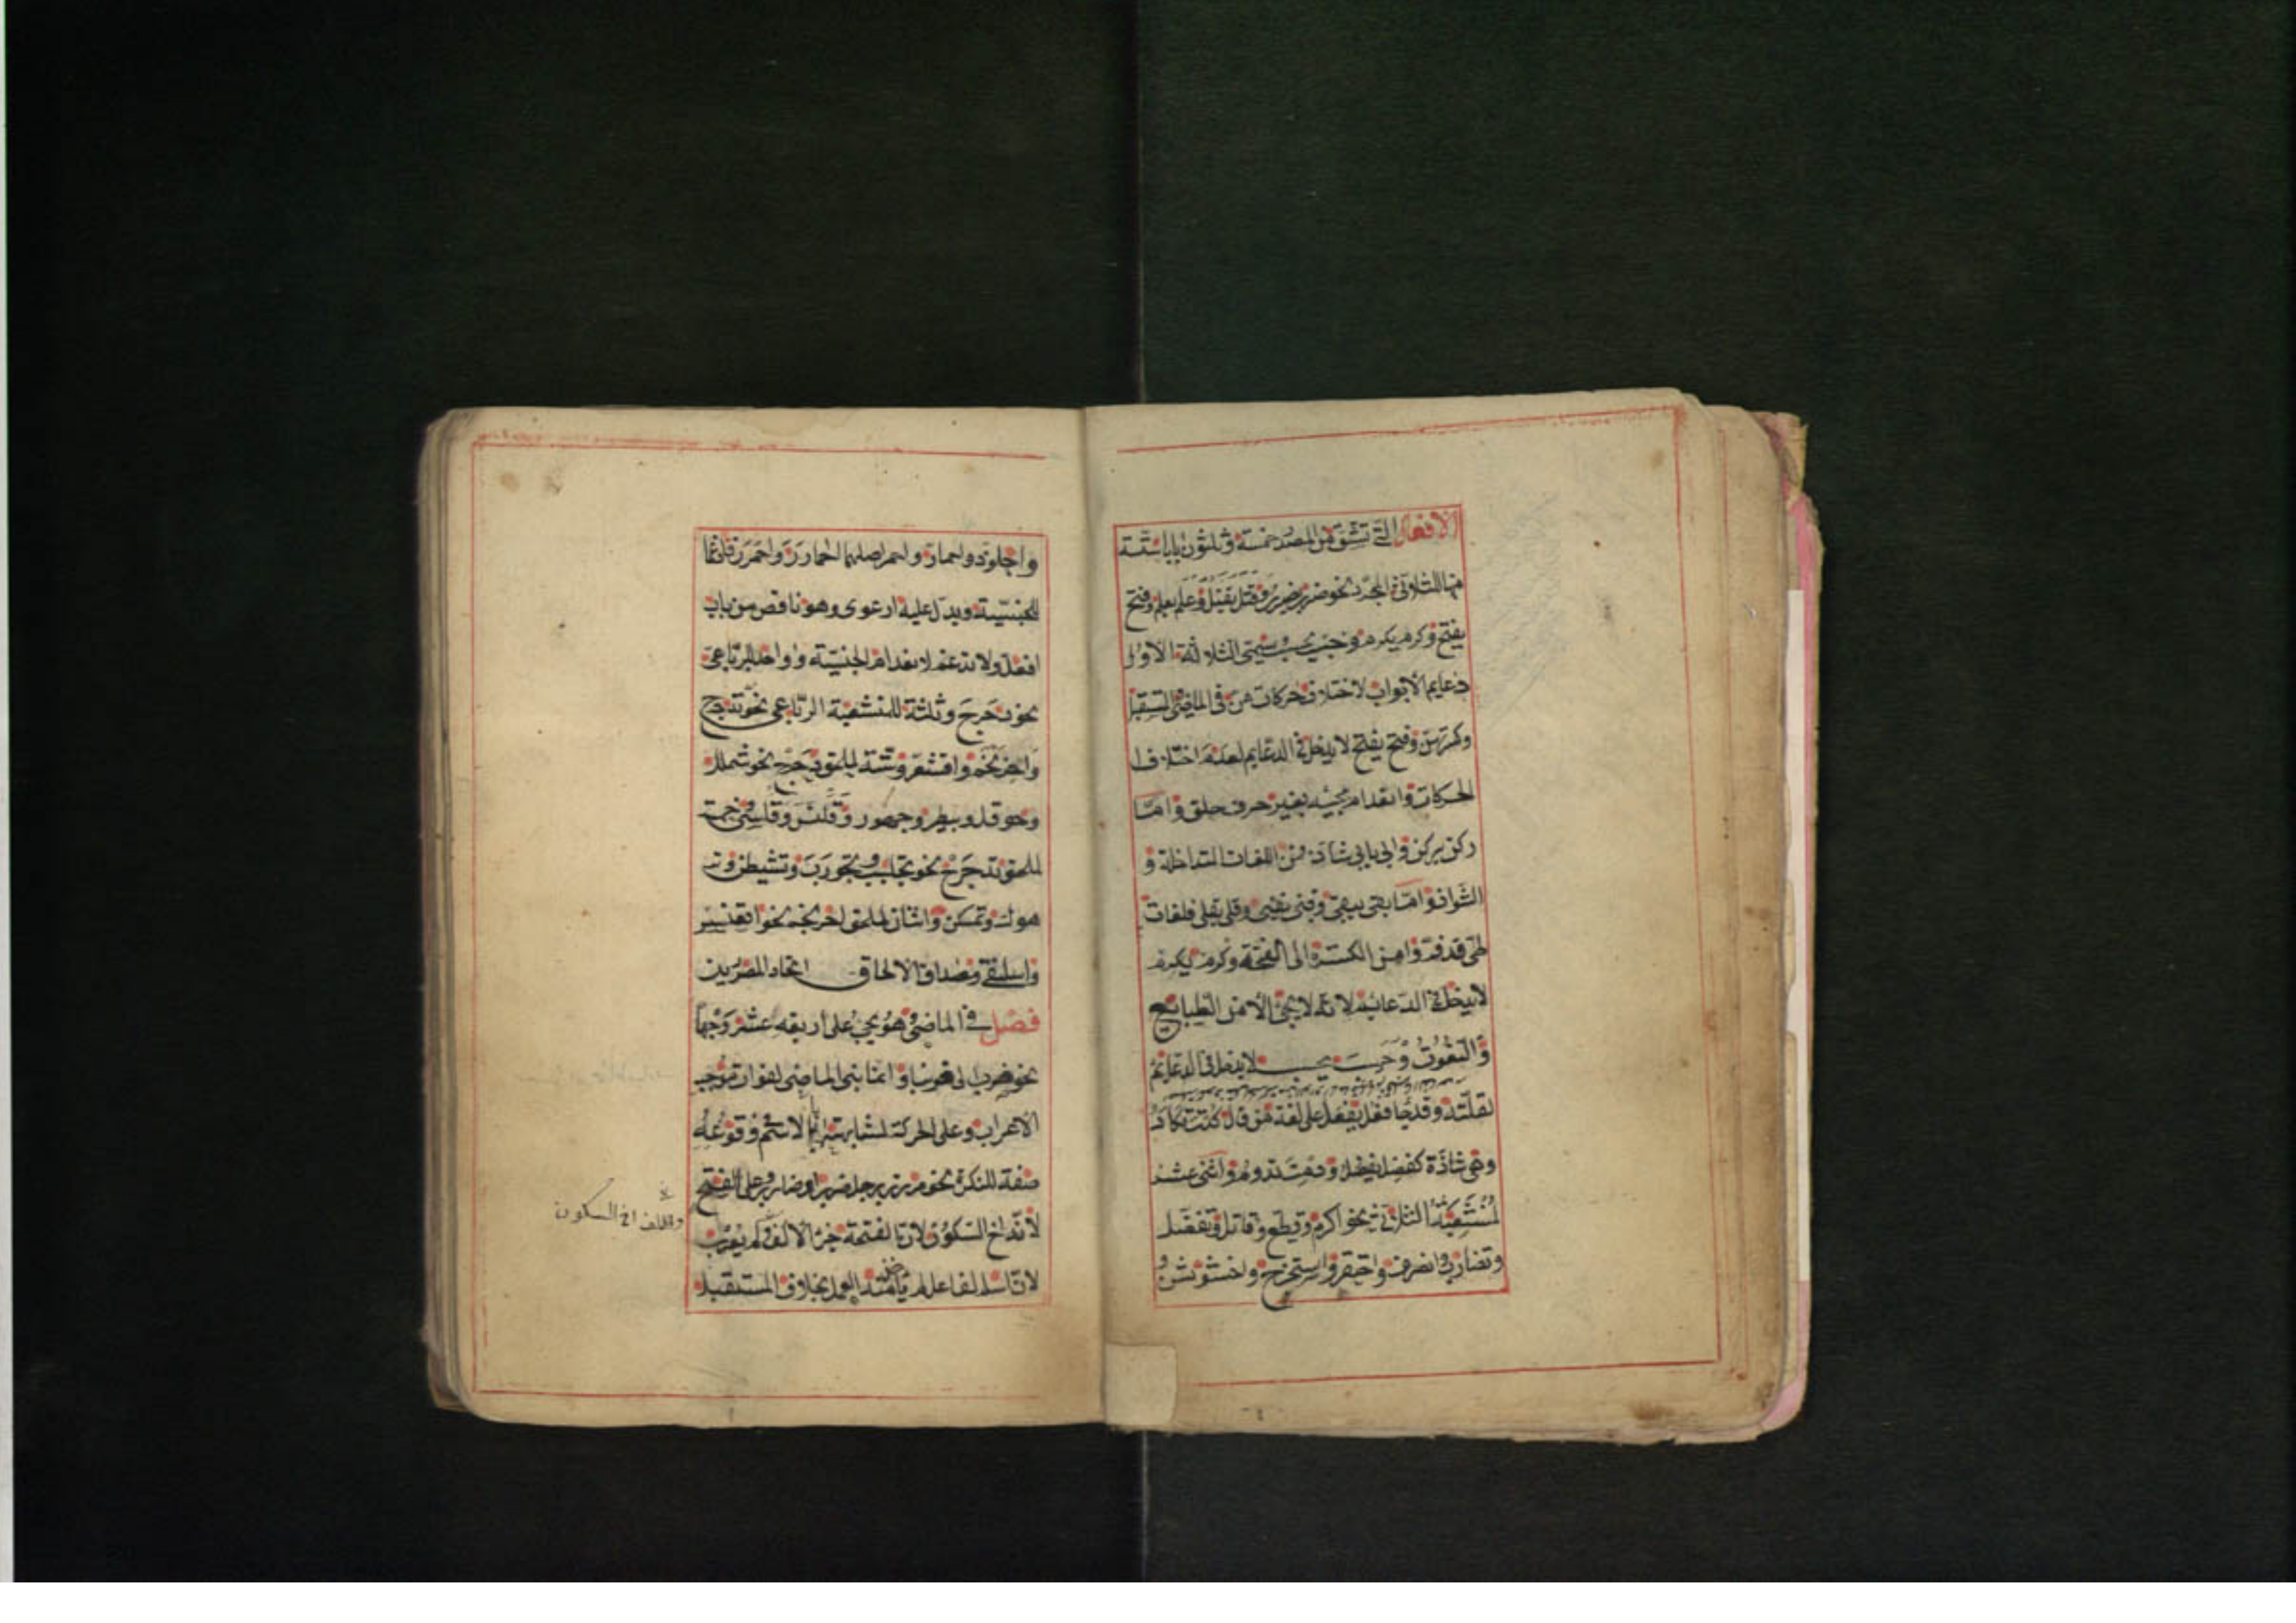 الافعال التي تشتق من المصدر خمسة وثلثون بابا ستة
منها للثلاثي المجرد نحو ضرب يضرب وقتل يقتل وعلم يعلم وفتح
يفتح وكرم يكرم وحسب يحسب ويسمى الثلاثة الاول
دعايم الابواب لاختلاف حركاتهن في الماضي والمستقبل
وكثرتهن وفتح يفتح لا يدخل في الدعايم لعدم اختلاف
الحركات وانعدام مجيئه بغير حرف حلق واما
ركن يركن وابى يابى شاذة فمن اللغات المتداخلة و
الشواذ واما بقى يبقى وفنى يفنى وقلى يقلى فلغات
طي قد فروا من الكسرة الى الفتحة وكرم يكرم
لا يدخل في الدعايم لانه لا يجئ الا من الطبايع
والنعوت وحسب يحسب لا يدخل في الدعايم
لقلته وقد جا فعل يفعل على لغة من قال كدت تكاد
وهي شاذة كفضل يفضل ودمت تدوم واثنى عشر
لمنشعبة الثلاثي نحو اكرم وقطع وقاتل وتفضل
وتضارب وانصرف واحتقر واستخرج واخشوشن
واجلوذ واحمار واحمر اصلهما احمارر واحمرر فادغما
للجنسية ويدل عليه ارعوى وهو ناقص من باب
افعل ولا تدغم لانعدام الجنسية وواحد للرباعي
نحو دحرج وثلثة للمنشعبة الرباعي نحو تدحرج
واحرنجم واقشعر وستة لملحق دحرج نحو شملل
وحوقل وبيطر وجهور وقلنس وقلسى وخمسة
لملحق تدحرج نحو تجلبب وتجورب وتشيطن وتر
هوك وتمسكن واثنان لملحق احرنجم نحو اقعنسس
واسلنقى ومصداق الالحاق اتحاد المصدرين
فصل في الماضي وهو يجئ على اربعة عشر وجها
نحو ضرب الى ضربنا وانما بنى الماضي لفوات موجب
الاعراب وعلى الحركة لمشابهته بالاسم في وقوعه
صفة للنكرة نحو مررت برجل ضرب وضارب وعلى الفتح
لانه اخ السكون لان الفتحة جزء الالف ولم يعرب
لان اسم الفاعل لم ياخذ منه العمل بخلاف المستقبل
والالف اخ السكون